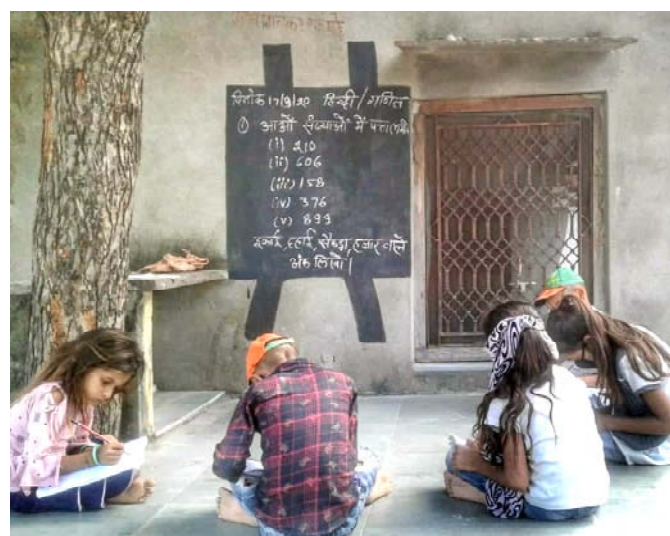 दिनांक 17/9/20 हिन्दी / गणित
① आओ संख्याओं में पता
(i) 210
(ii) 606
(iii) 158
(iv) 376
(v) 899
इकाई, दहाई, सैकड़ा, हजार वाले
अंक लिखो।